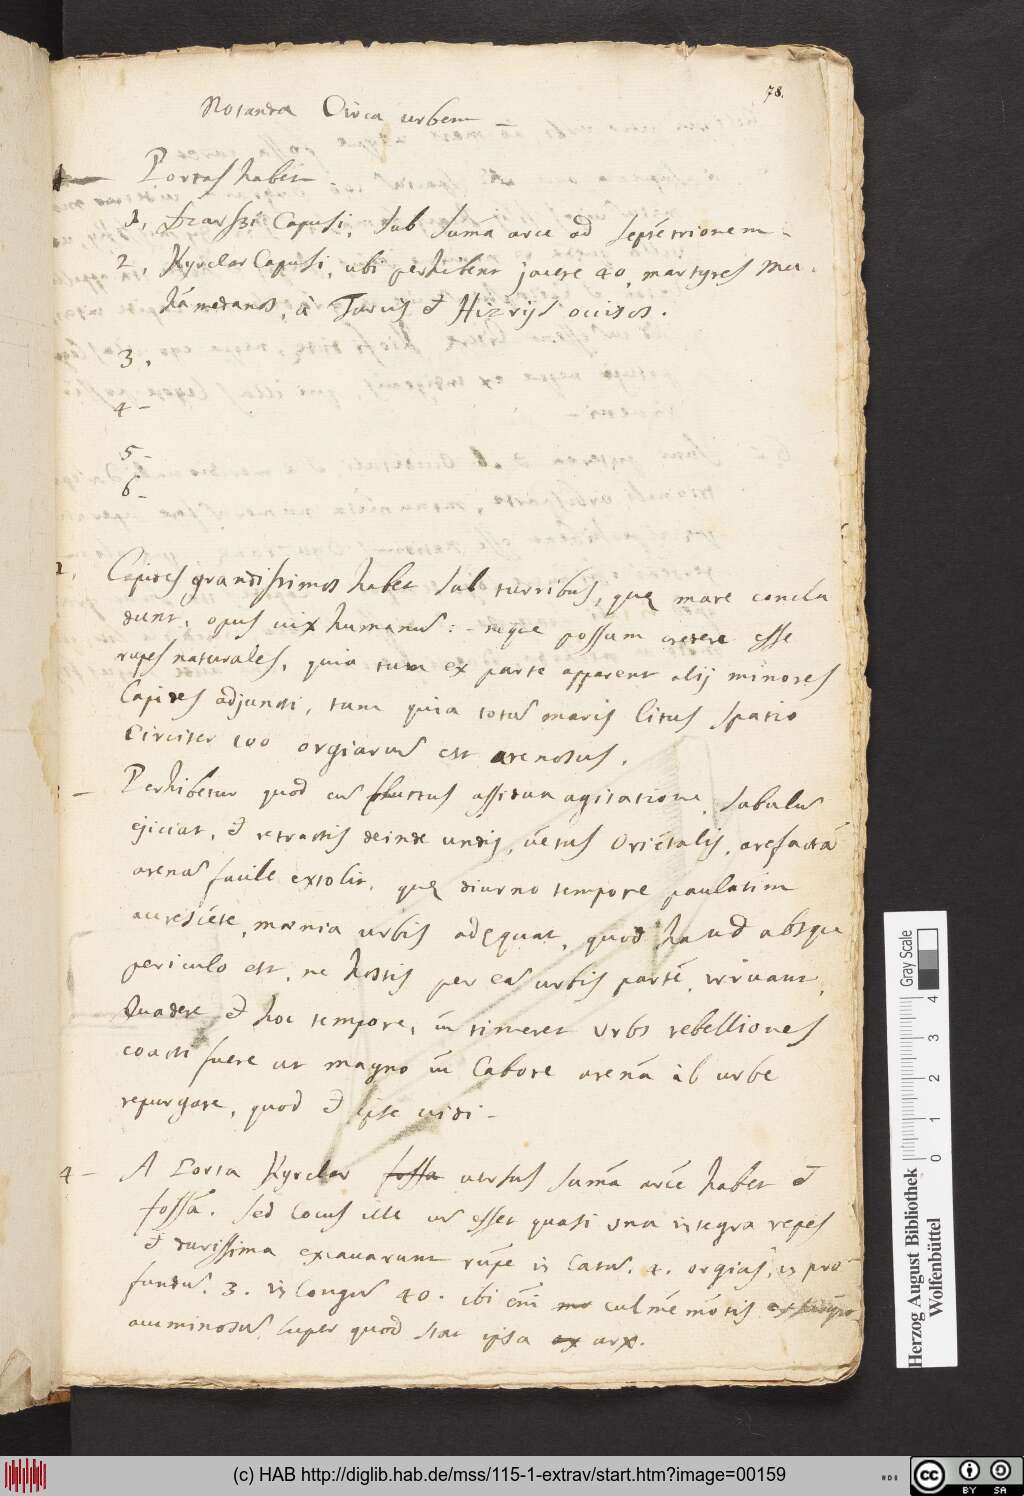 78.
Notanda Circa urbem –
1 – Portas habet
1, Szarszi Capusi, sub sum̄a arce ad septẽtrionem –
2, Kyrclar Capusi, ubi perhibent jacere 40, martyres Mu-
hãmedanos, à Turcis & Hizrijs occisos.
3,
4 –
5 –
6 –
2. Lapides grandissimos habet sub turribus, quę mare conclu
dunt, opus vix humanũ: – neque possum credere esse
rupes naturales, quia tum ex parte apparent alij minores
Lapides adjuncti, tum quia totũ maris litus spatio
Circiter 100 orgiarũ est arenosus.
– Perhibetur quod cũ fluctus assidua agitatione, sabulũ
ejiciat, & retractis deinde undis, vẽtus Oriẽtalis, arefactã
arenã facile extolit, quę diurno tempore paulatim
accrescẽte, mœnia urbis adęquat, quod haud absque
periculo est, ne hostis per eã urbis partẽ, irruant,
Quadere & hoc tempore, cũ timeret urbs rebelliones
coacti fuere ut magno cũ labore arenã ab urbe
repurgare, quod & ipse vidi –
4 – A Porta Kyrclar fossa versus sum̄ã arcẽ habet &
fossã. sed locus ille cũ esset quasi una integra rupes
& durissima excavarunt rũpe in latũ. 4. orgias, in pro
fundũ. 3. in longũ 40. ubi enĩ mo culmẽ mõtis
acuminosũ super quod stat ipsa ex arx.
Gray Scale
0 1 2 3 4
Herzog August Bibliothek
Wolfenbüttel
(c) HAB http://diglib.hab.de/mss/115-1-extrav/start.htm?image=00159
HAB
cc BY SA